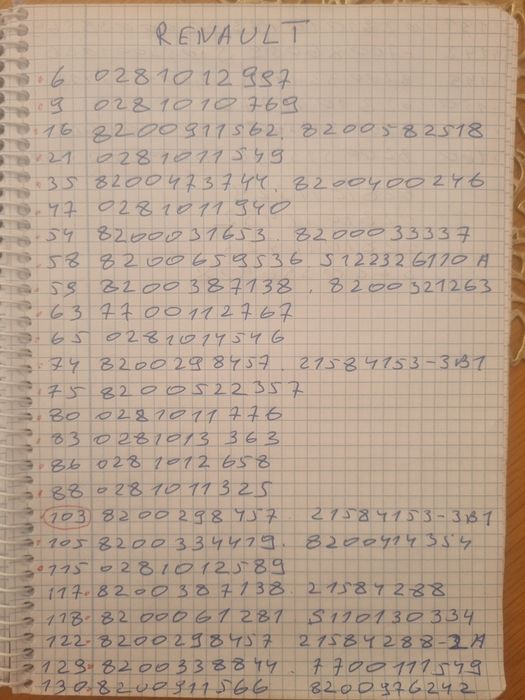 RENAULT
6 0281012997
9 0281010769
16 8200911562. 8200582518
21 0281011549
35 8200473744. 8200400246
47 0281011940
54 8200031653. 8200033337
58 8200659536. S122326110A
59 8200387138. 8200321263
63 7700112767
65 0281014546
74 8200298457. 21584153-3B1
75 8200522357
80 0281011776
83 0281013363
86 0281012658
88 0281011325
103 8200298457. 21584153-3B1
105 8200334419. 8200414354
115 0281012589
117. 8200387138. 21584288
118. 8200061281 S110130334
122. 8200298457 21584288-2A
129. 8200338844. 7700111549
130. 8200911566 8200976242